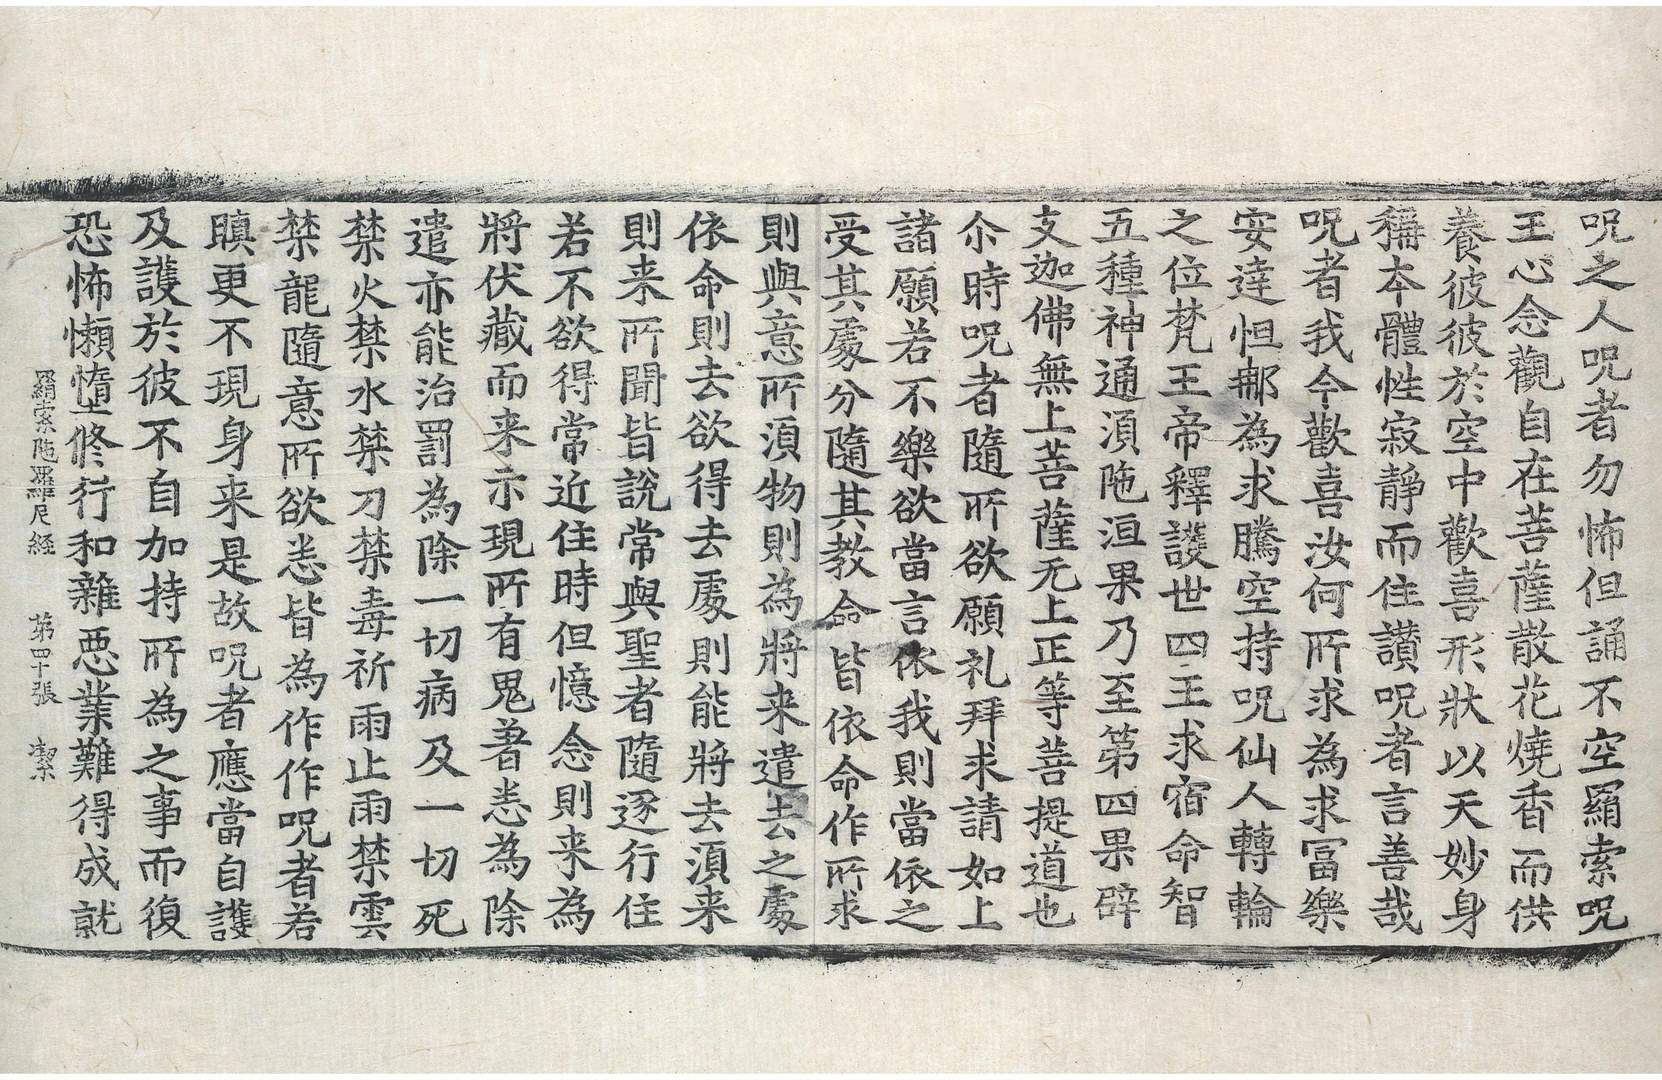 呪之人呪者勿怖但誦不空羂索呪
王心念觀自在菩薩散花燒香而供
養彼彼於空中歡喜形狀以天妙身
稱本體性寂靜而住讃呪者言善哉
呪者我今歡喜汝何所求為求冨樂
安達怛郝為求騰空持呪仙人轉輪
之位梵王帝釋護世四王求宿命智
五種神通湏陁洹果乃至第四果辟
支迦佛無上菩薩无上正等菩提道也
尒時呪者隨所欲願礼拜求請如上
諸願若不樂欲當言依我則當依之
受其處分隨其教命皆依命作所求
則與意所湏物則為將来遣去之處
依命則去欲得去處則能將去湏来
則来所聞皆說常與聖者隨逐行住
若不欲得常近住時但憶念則来為
將伏藏而来示現所有鬼著悉為除
遣亦能治罰為除一切病及一切死
禁火禁水禁刀禁毒祈雨止雨禁雲
禁龍隨意所欲悉皆為作作呪者若
瞋更不現身来是故呪者應當自護
及護於彼不自加持所為之事而復
恐怖懶惰修行和雜惡業難得成就
羂索陁羅尼経 第四十張 潔